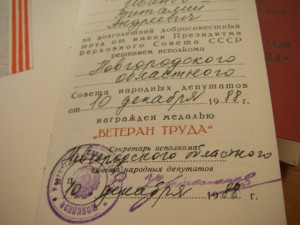 Виталий
Андреевич
за долголетний добросовестный
труд от имени Президиума
Верховного Совета СССР
решением исполкома
Новгородского
областного
Совета народных депутатов
от 10 декабря 1988 г.
награжден медалью
"ВЕТЕРАН ТРУДА"
Секретарь исполкома
Новгородского областного
Совета народных депутатов
10 декабря 1988 г.
ИСПОЛКОМ